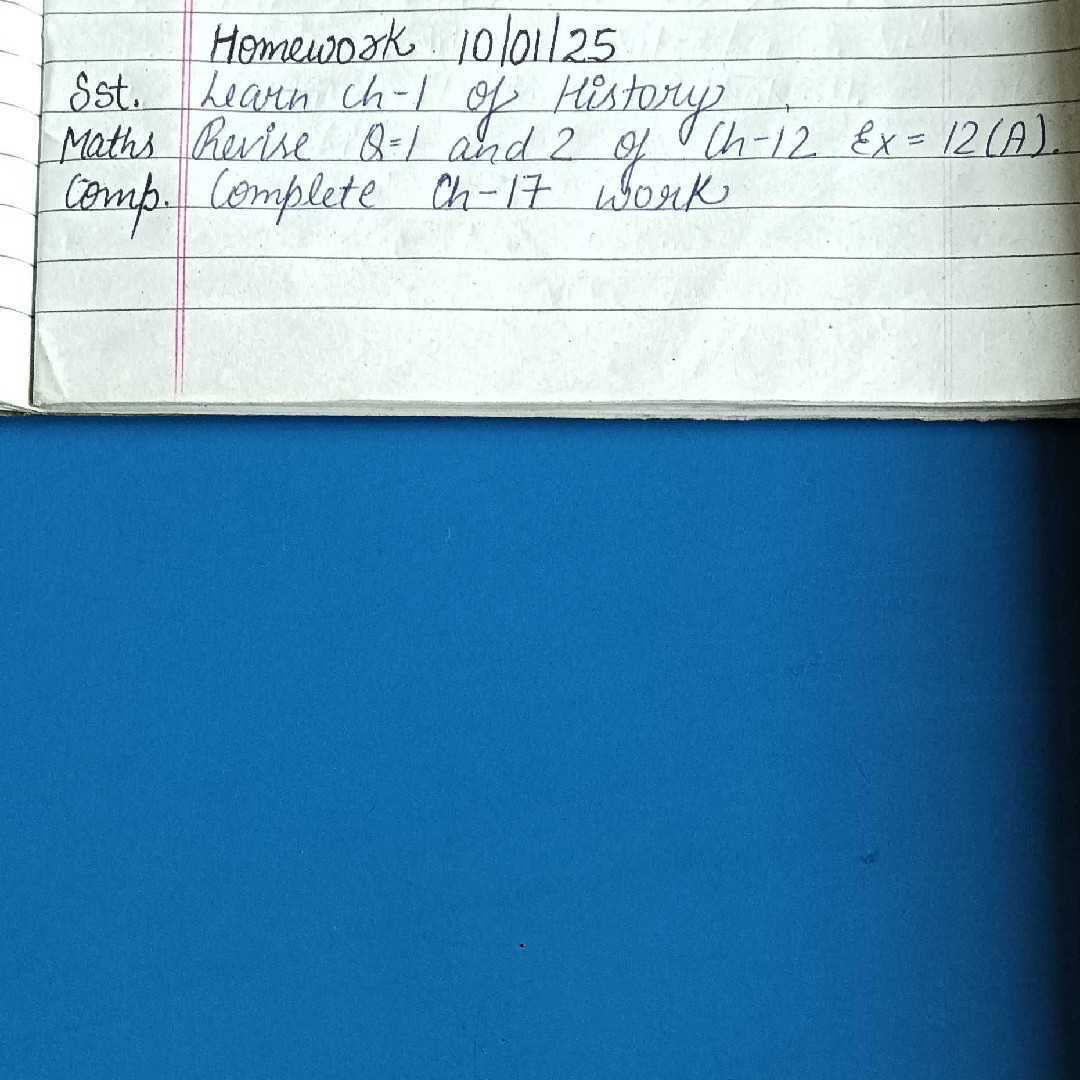 Homework 10/01/25
Sst. Learn Ch-1 of History
Maths Revise Q=1 and 2 of Ch-12 Ex = 12(A).
Comp. Complete Ch-17 work